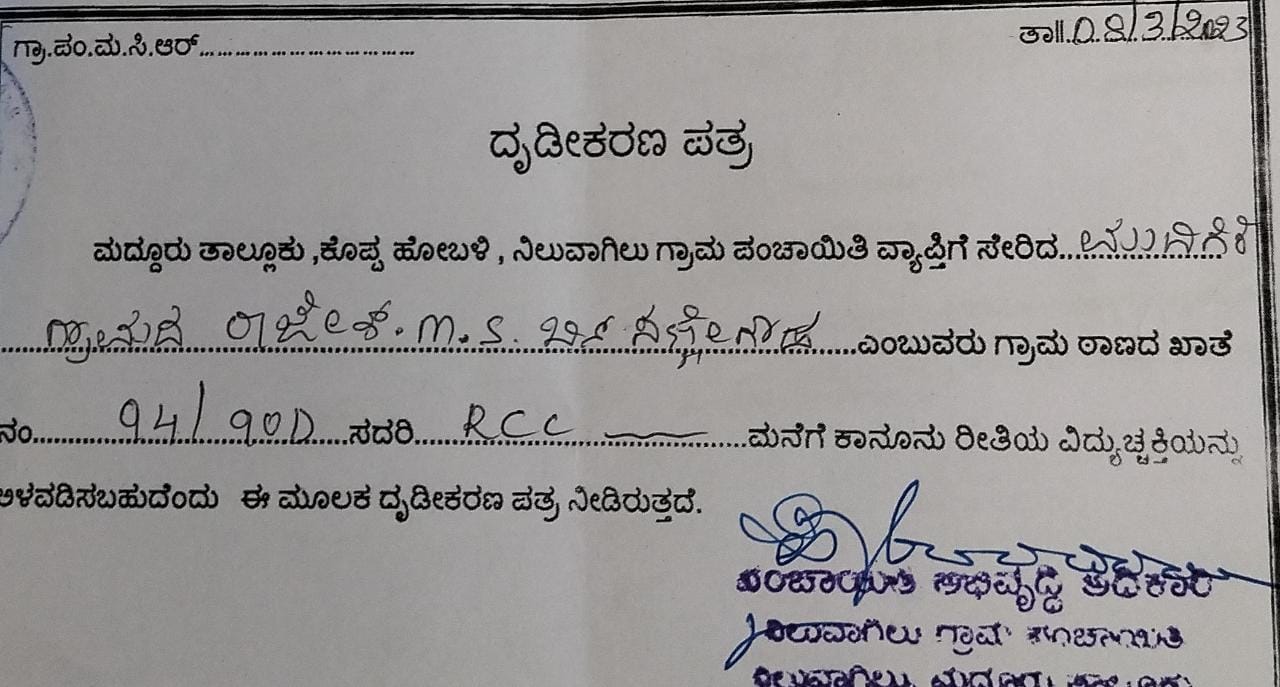 ಗ್ರಾ.ಪಂ.ಮ.ಸಿ.ಆರ್................................ ತಾ॥.08/3/2023
ದೃಡೀಕರಣ ಪತ್ರ
ಮದ್ದೂರು ತಾಲ್ಲೂಕು ,ಕೊಪ್ಪ ಹೋಬಳಿ , ನಿಲುವಾಗಿಲು ಗ್ರಾಮ ಪಂಚಾಯಿತಿ ವ್ಯಾಪ್ತಿಗೆ ಸೇರಿದ
ಗ್ರಾಮದ ರಾಜೇಶ್. M. S. ಬಿನ್ ಎಂಬುವರು ಗ್ರಾಮ ಠಾಣದ ಖಾತೆ
ನಂ. 94/90D ಸದರಿ RCC ಮನೆಗೆ ಕಾನೂನು ರೀತಿಯ ವಿದ್ಯುಚ್ಚಕ್ತಿಯನ್ನು
ಅಳವಡಿಸಬಹುದೆಂದು ಈ ಮೂಲಕ ದೃಡೀಕರಣ ಪತ್ರ ನೀಡಿರುತ್ತದೆ.
ಪಂಚಾಯಿತಿ ಅಭಿವೃದ್ಧಿ ಅಧಿಕಾರಿ
ನಿಲುವಾಗಿಲು ಗ್ರಾಮ ಪಂಚಾಯಿತಿ
ನಿಲುವಾಗಿಲು, ಮದ್ದೂರು ತಾಲ್ಲೂಕು